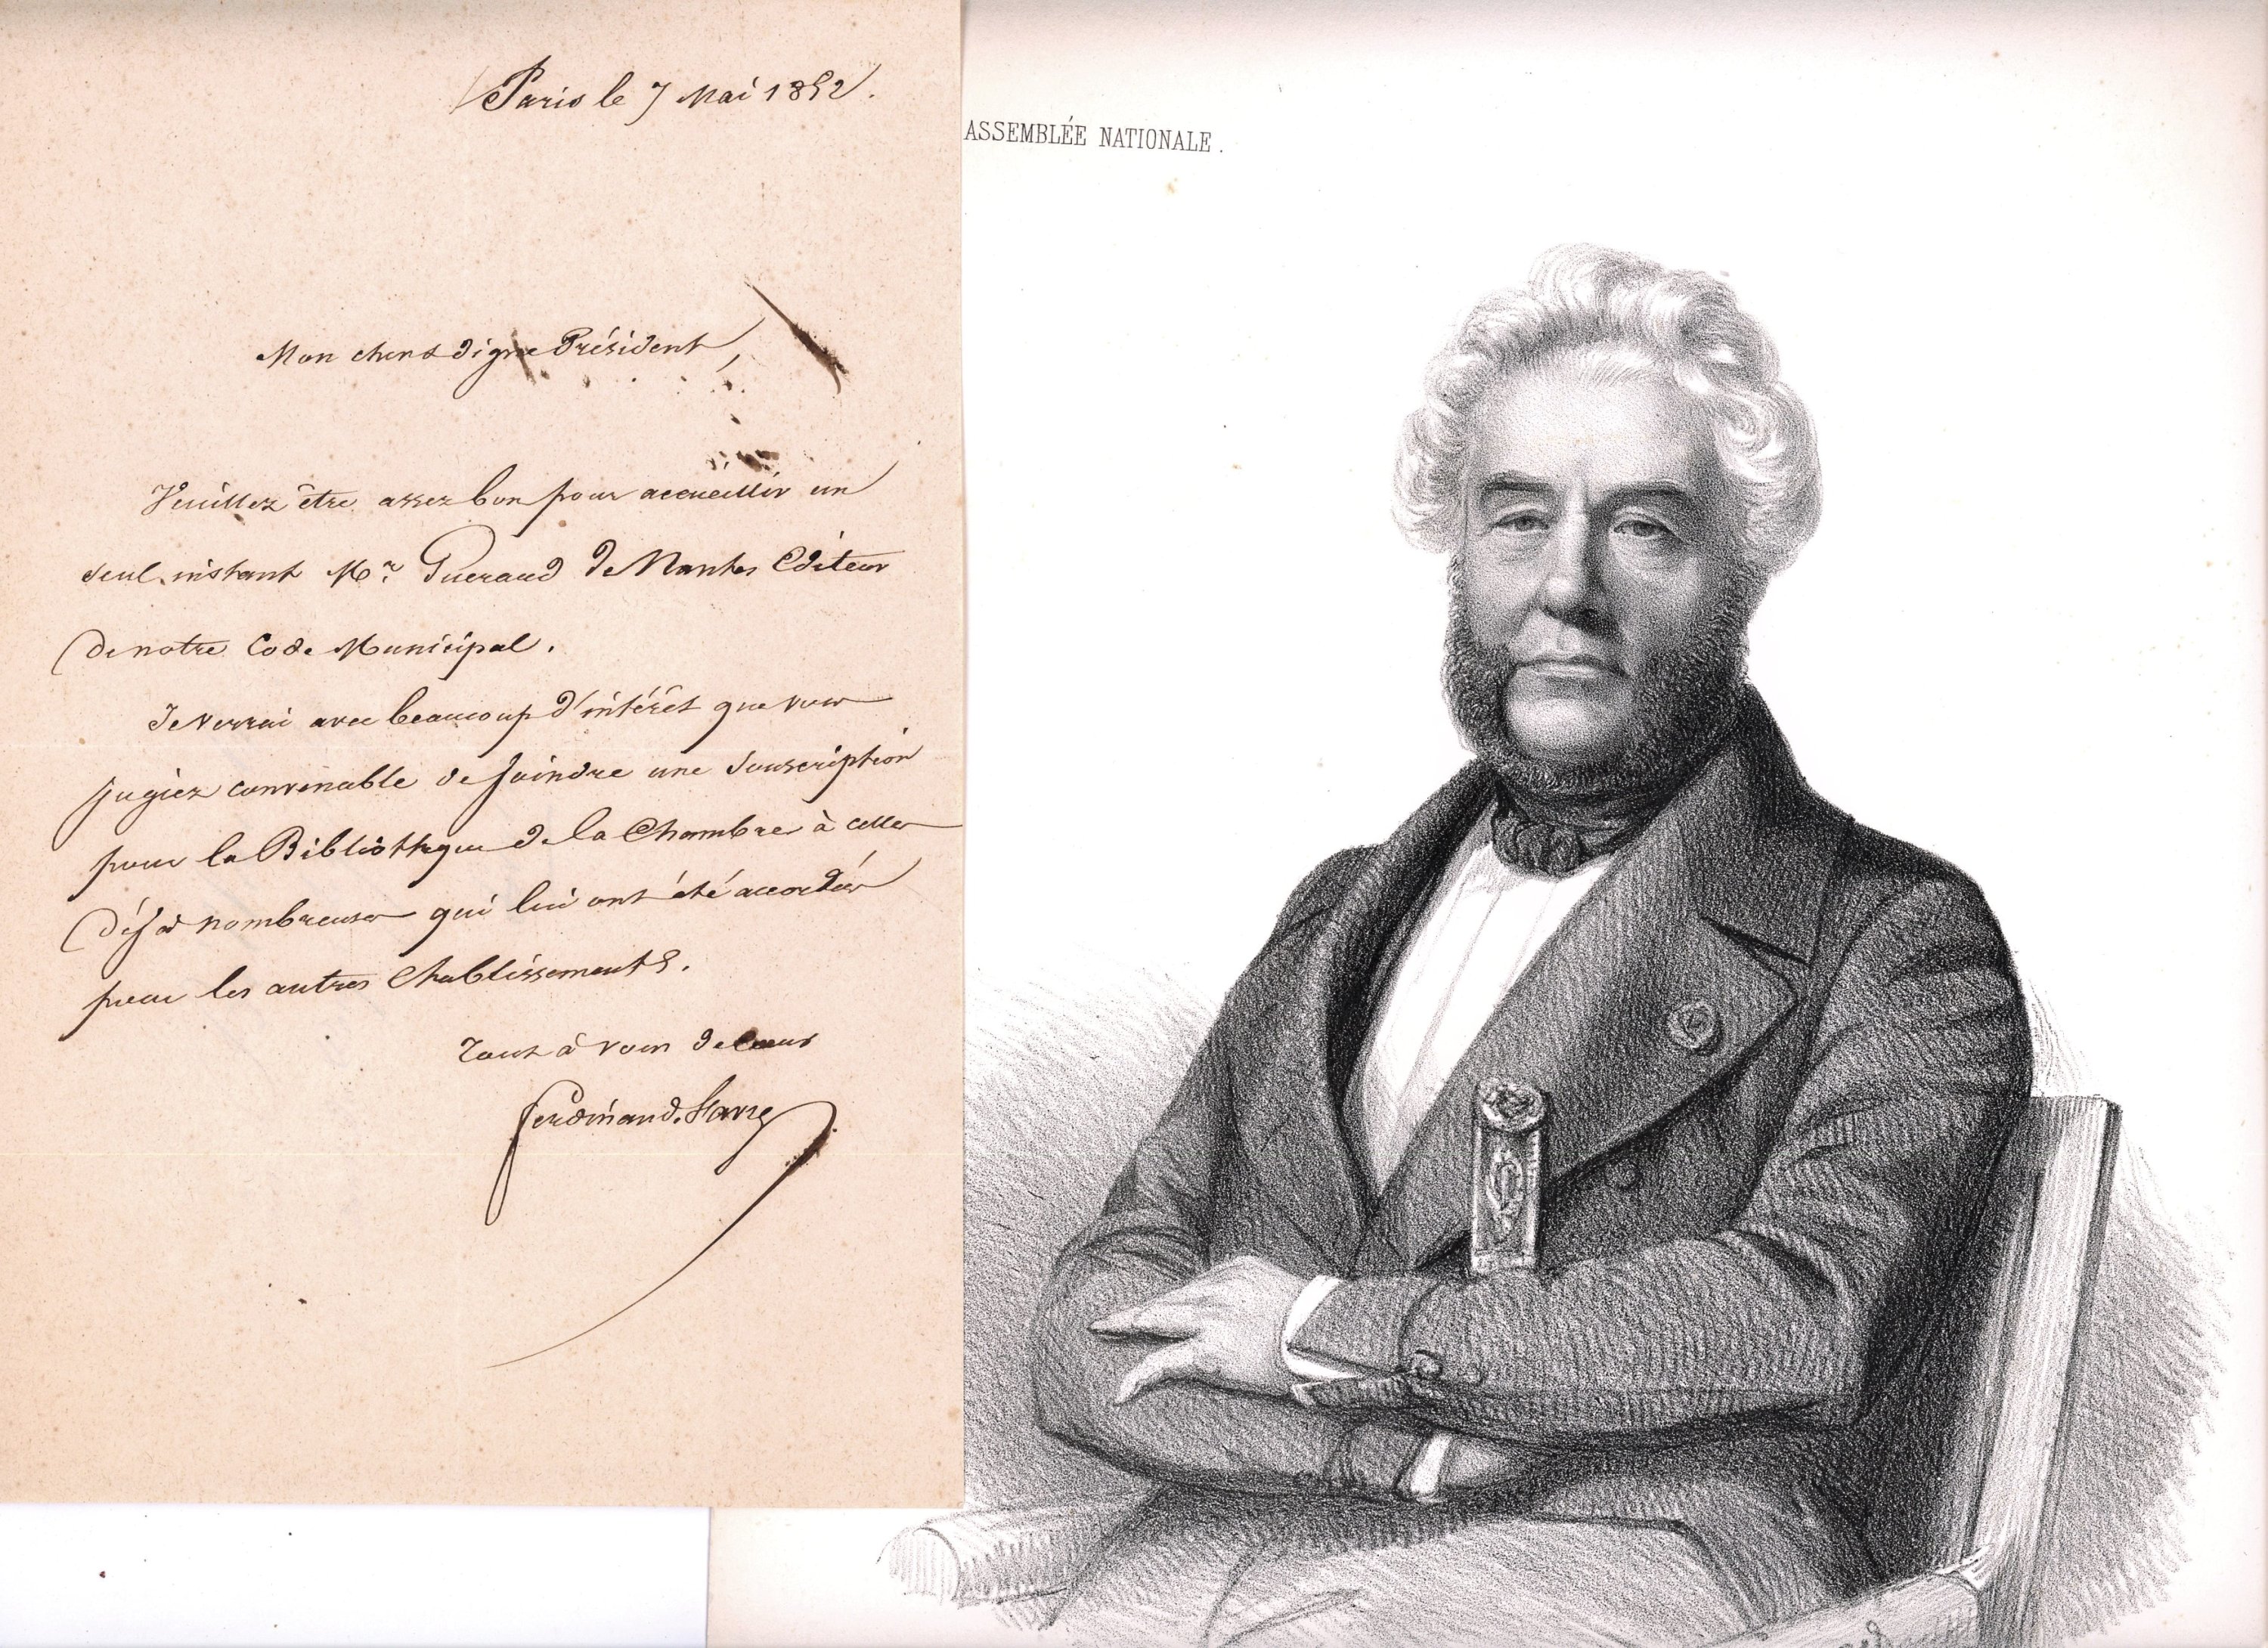 Paris le 7 Mai 1852.
ASSEMBLÉE NATIONALE.
Mon cher & digne Président,
Veuillez être assez bon pour accueillir un
seul instant Mr. Gueraud de Nantes Editeur
de notre Code Municipal.
Je verrai avec beaucoup d'intérêt que vous
jugiez convenable de joindre une souscription
pour la Bibliothèque de la Chambre à celles
déja nombreuses qui lui ont été accordées
pour les autres Etablissements.
Tout à vous de cœur
Ferdinand. Favre